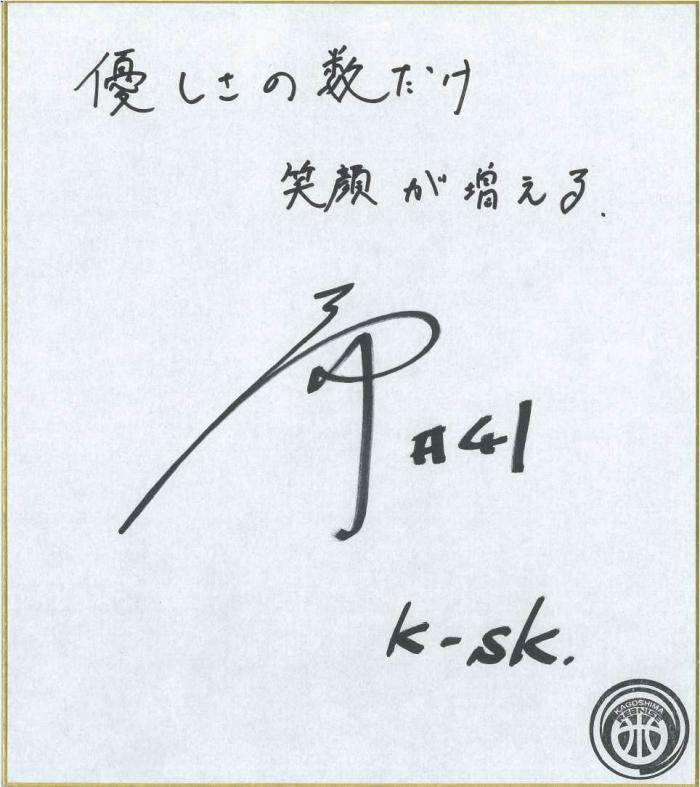 優しさの数だけ
笑顔が増える.
#41
K-SK.
KAGOSHIMA
REBNISE